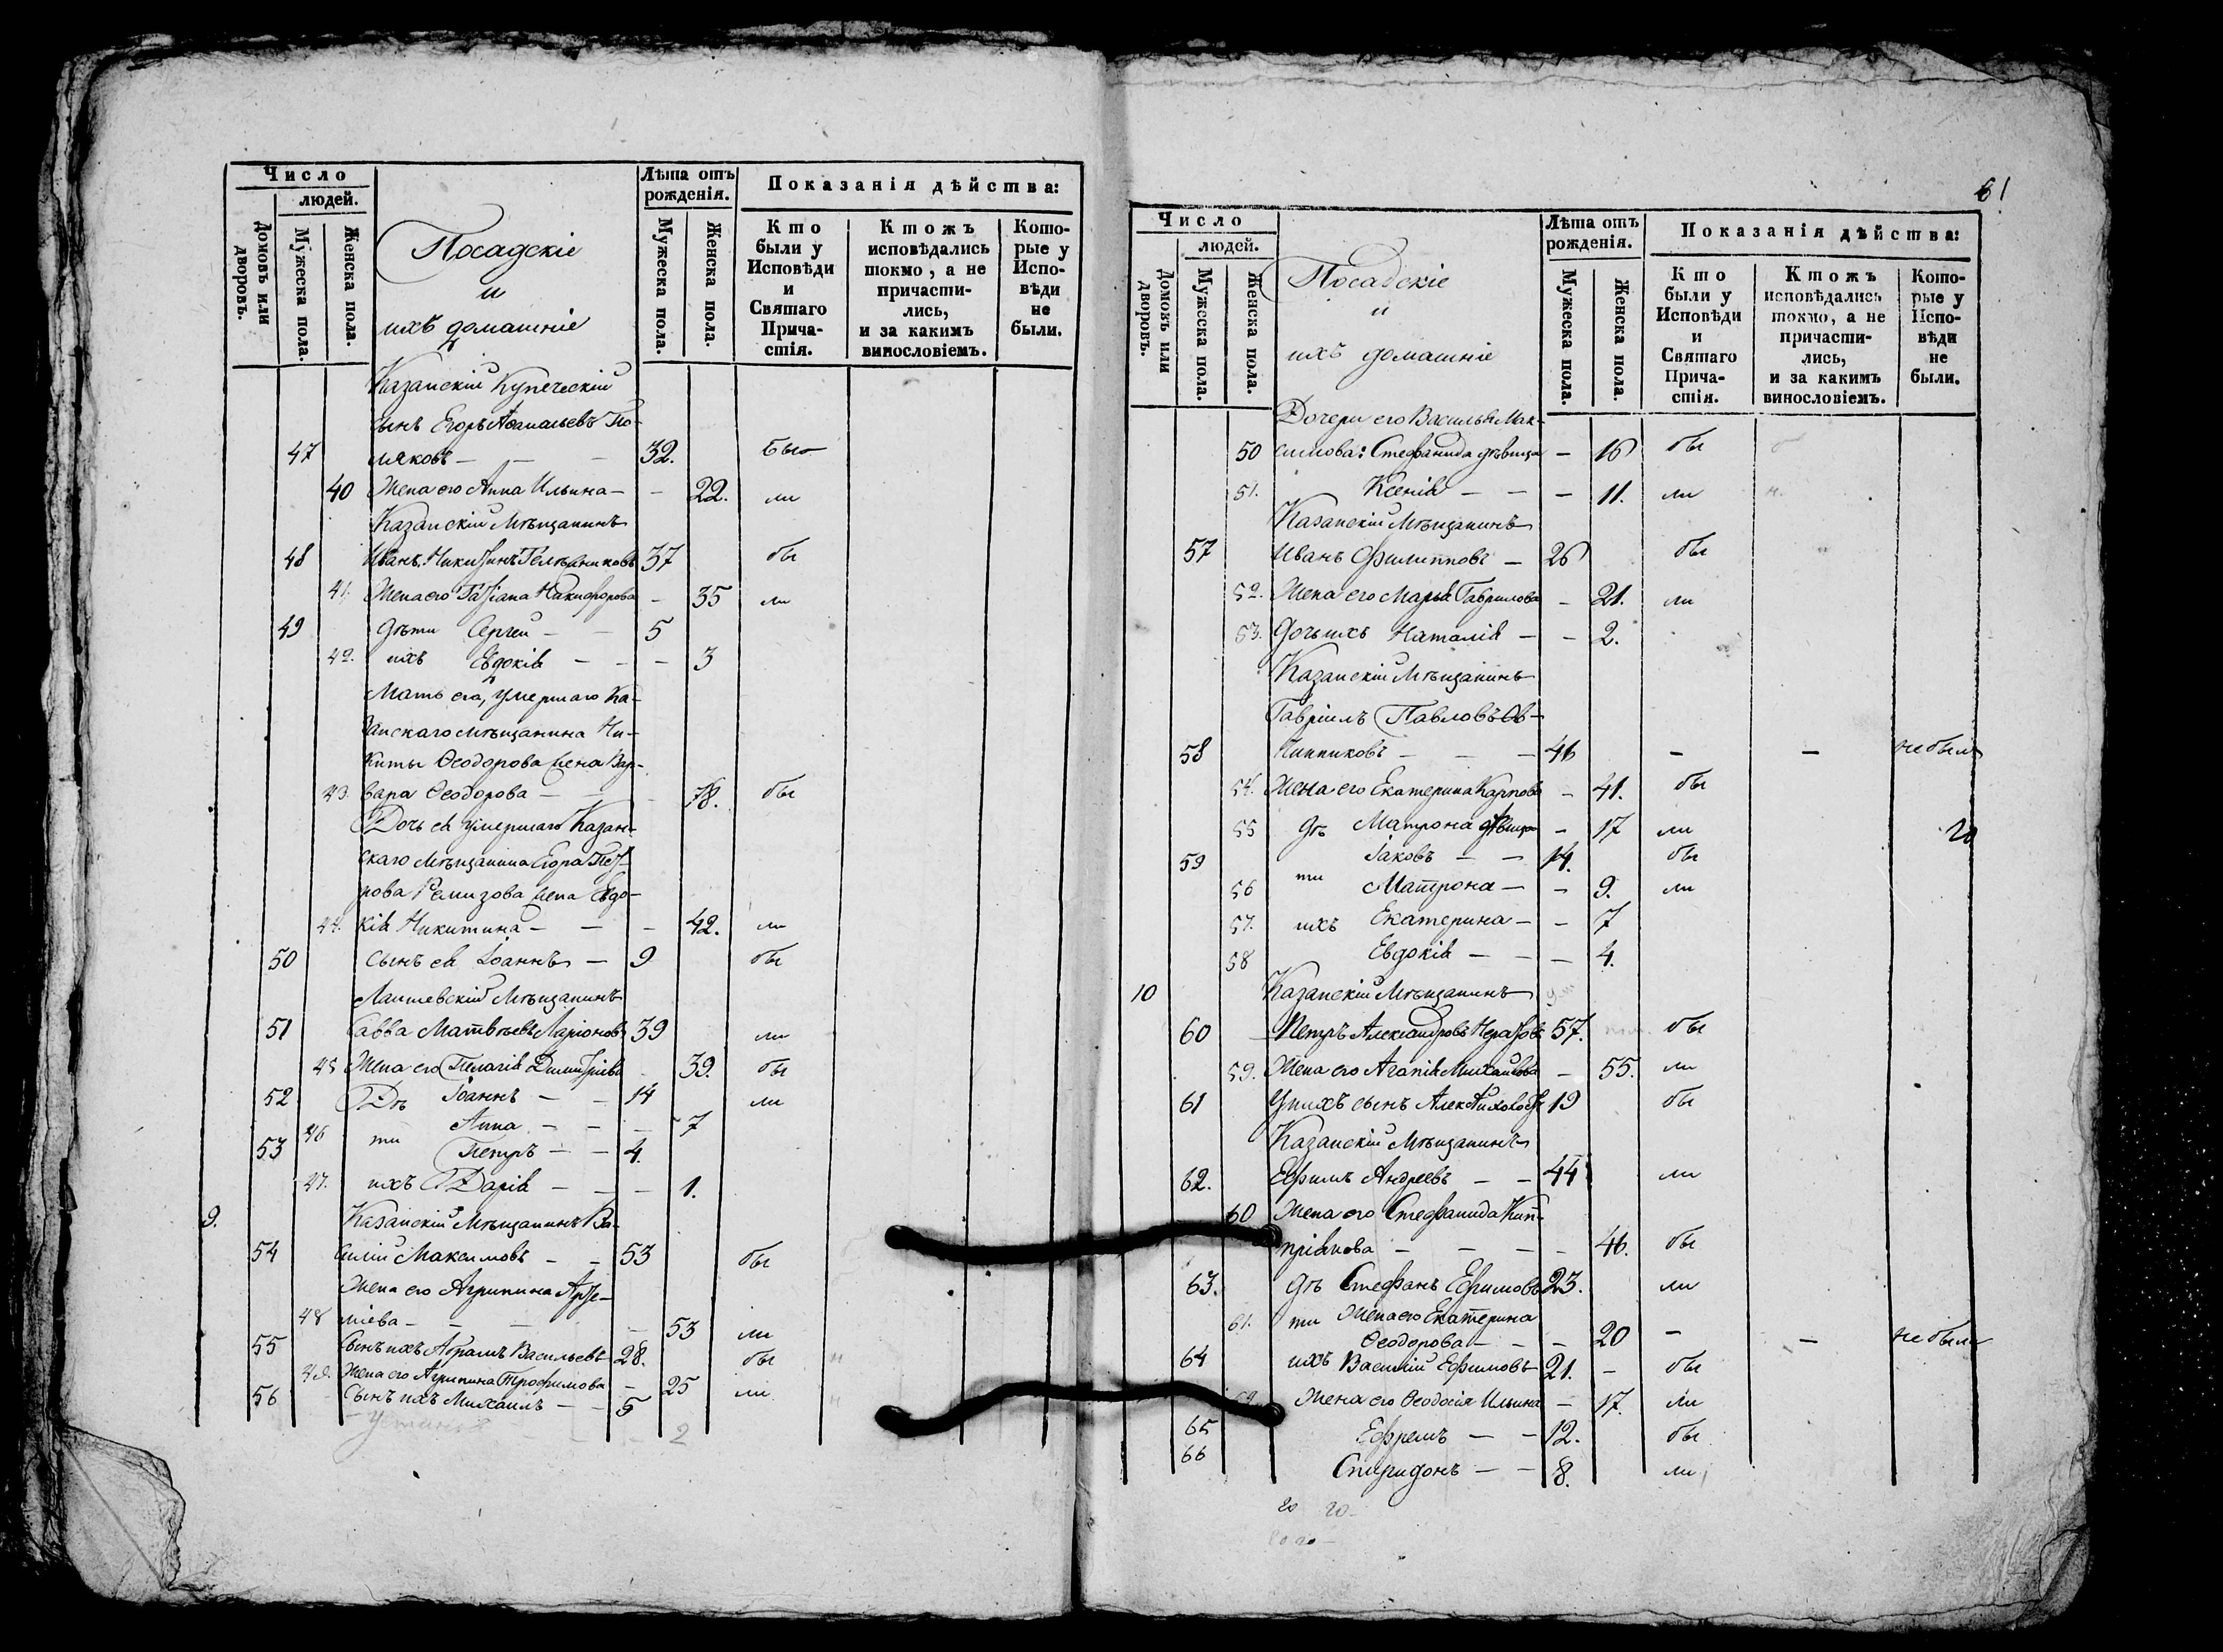 Число
людей.
Домовъ или дворовъ.
Мужеска пола.
Женска пола.
Посадскіе
и
ихъ домашніе
Лѣта отъ рожденія.
Мужеска пола.
Женска пола.
Показанія дѣйства:
Кто были у Исповѣди и Святаго Причастія.
Ктожъ исповѣдались токмо, а не причастились, и за какимъ винословіемъ.
Которые у Исповѣди не были.
Казанскій Купеческій
сынъ Егоръ Афанасьевъ По-
47 ляковъ — — — 32. Бы
40 Жена его Анна Ильина — — 22. ли
Казанскій Мѣщанинъ
48 Иванъ Никитинъ 37 бы
41 Жена его Татіана Никифорова — 35 ли
49 дѣти Сергей — — 5
42. ихъ Евдокія — — — 3
Мать его, умершаго Ка-
занскаго мѣщанина Ни-
киты Ѳеодорова жена Вар-
43. вара Ѳеодорова — — — 78. бы
Дочь ея умершаго Казан-
скаго мѣщанина Егора Пет-
рова Ремизова жена Евдо-
44. кія Никитина — — — 42. ли
50 Сынъ ея Іоаннъ — 9 бы
Лаишевскій Мѣщанинъ
51 Савва Матвѣевъ Ларіоновъ 39 ли
45 Жена его Пелагія Димитріева 39. бы
52 Дѣ Іоаннъ — — 14 ли
46 Анна — — — 7
53 ти Петръ — — 4.
47. ихъ Дарія — — — 1.
9. Казанскій Мѣщанинъ Ва-
54 силій Максимовъ — — 53 бы
Жена его Агрипина Арте-
48 міева — — — — 53 ли
55 Сынъ ихъ Абрамъ Васильевъ 28. бы
49. Жена его Агрипина Трофимова — 25 ли
56 Сынъ ихъ Михаилъ — — 5
2
61
Число
людей.
Домовъ или дворовъ.
Мужеска пола.
Женска пола.
Посадскіе
и
ихъ домашніе
Лѣта отъ рожденія.
Мужеска пола.
Женска пола.
Показанія дѣйства:
Кто были у Исповѣди и Святаго Причастія.
Ктожъ исповѣдались токмо, а не причастились, и за какимъ винословіемъ.
Которые у Исповѣди не были.
Дочери его Василья Мак-
50 симова: Стефанида дѣвица — 16 бы
51. Ксенія — — — 11. ли
Казанскій Мѣщанинъ
57 Иванъ Филипповъ — 26 бы
52. Жена его Марья Гаврилова — 21. ли
53. Дочь ихъ Наталія — — 2.
Казанскій Мѣщанинъ
Гавріилъ Павловъ Ов-
58 чинниковъ — — — 46 — — не былъ
54. Жена его Екатерина Карпова — 41. бы
55 дѣ Матрона дѣвица — 17 ли
59 Іаковъ — — 14. бы
56 ти Матрона — — 9. ли
57. ихъ Екатерина — — 7
58 Евдокія — — — 4.
10 Казанскій Мѣщанинъ
60 Петръ Александровъ 57. бы
59. Жена его Агапія Михайлова — 55. ли
61 У нихъ сынъ 19 бы
Казанскій Мѣщанинъ
62. Ефимъ Андреевъ — — 44 ли
60 Жена его Стефанида Кип-
ріянова — — — — 46. бы
63. дѣ Стефанъ Ефимовъ 23. ли
61. ти Жена его Екатерина
Ѳеодорова — — — 20 — — не была
64 ихъ Василій Ефимовъ 21. — бы
62. Жена его Ѳеодосія Ильина — 17. ли
65 Ефремъ — — 12. бы
66 Спиридонъ — — 8. ли